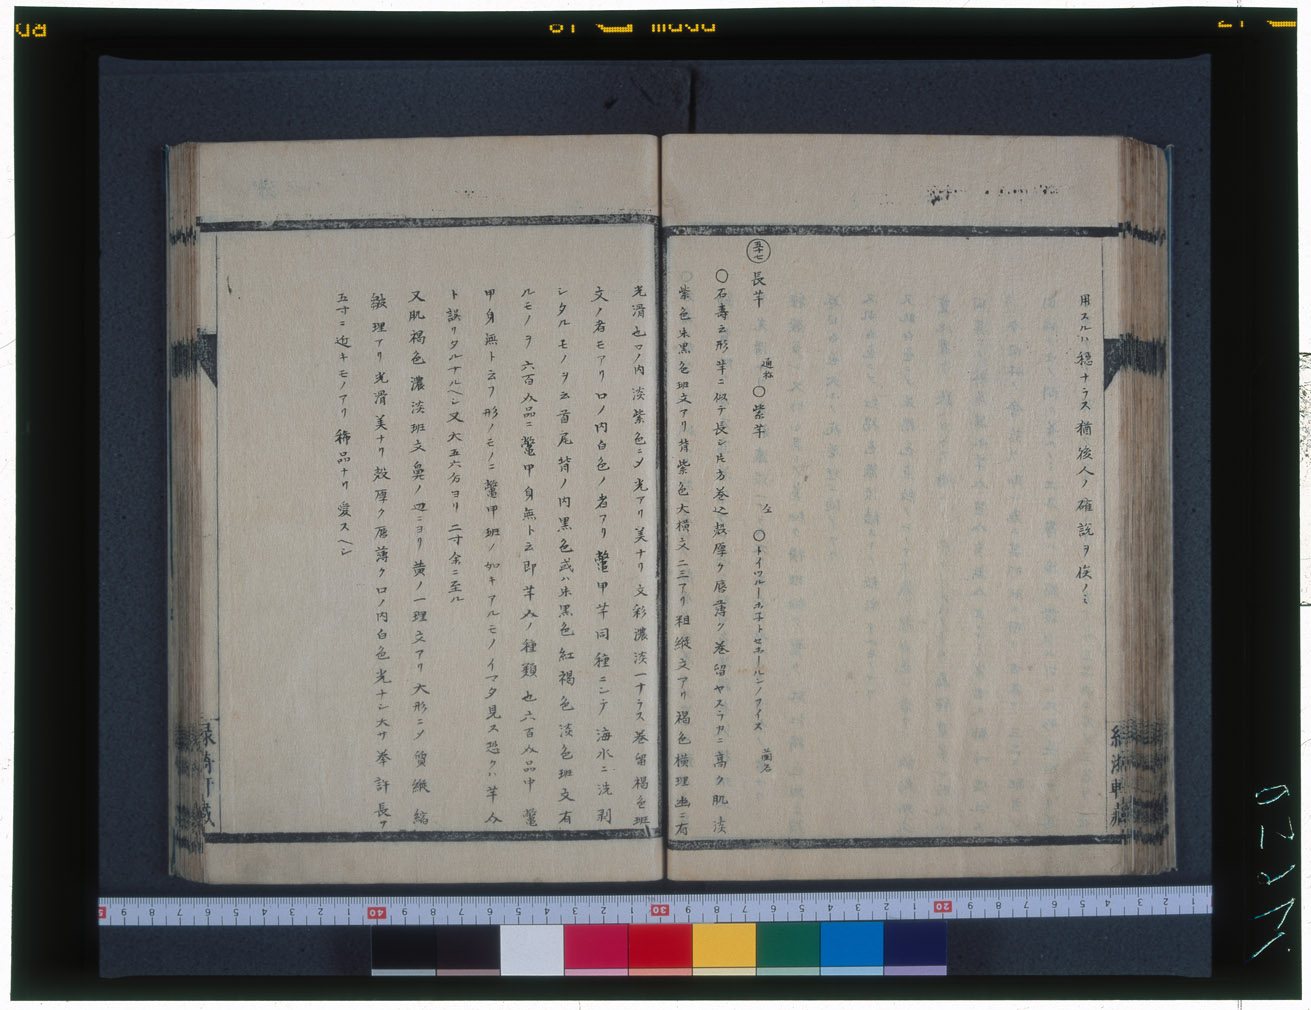 用スルハ穏ナラス猶後人ノ確説ヲ俟ノミ
五十七 長芋 通称 ○紫芋 仝 ○トイツルーホ子トセエールシノワイス 蘭名
○石寿云形芋ニ似テ長シ片方巻込殻厚ク唇薄ク巻留ヤスラカニ高ク肌淡
紫色朱黒色斑文アリ背紫色大横文二三アリ粗縦文アリ褐色横理幽ニ有
光滑也口ノ内淡紫色ニメ光アリ美ナリ文彩濃淡一ナラス巻留褐色斑
文ノ者モアリ口ノ内白色ノ者アリ鼈甲芋同種ニシテ海水ニ洗剥
シタルモノヲ云首尾背ノ内黒色或ハ朱黒色紅褐色淡色斑文有
ルモノヲ六百介品ニ鼈甲身無ト云即芋介ノ種類也六百介品中鼈
甲身無ト云フ形ノモノニ鼈甲斑ノ如キアルモノイマタ見ス恐クハ芋介
ト誤リタルナルヘシ又大五六分ヨリ二寸余ニ至ル
又肌褐色濃淡斑文鼻ノ辺ニヨリ黄ノ一理文アリ大形ニメ質縦縮
皺理アリ光滑美ナリ殻厚ク唇薄ク口ノ内白色光ナシ大サ拳許長サ
五寸ニ近キモノアリ稀品ナリ愛スヘシ